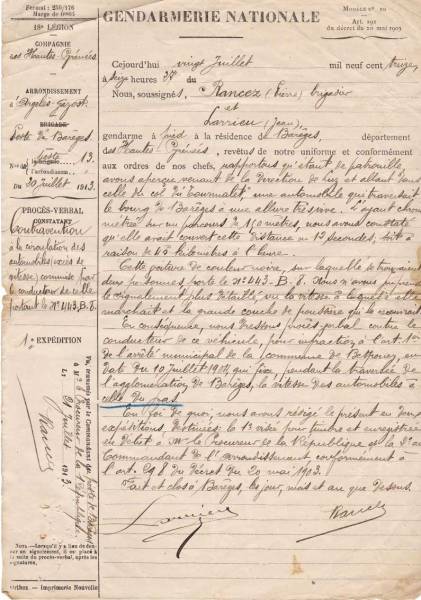 Format : 210/176
Marge de 0m05
18e LÉGION
COMPAGNIE
des Hautes Pyrénées
ARRONDISSEMENT
d'Argelès-Gazost
BRIGADE
Poste de Barèges
13.
Du 20 juillet 1913.
PROCÈS-VERBAL
CONSTATANT
Contravention
à la circulation des
automobiles (excès de
vitesse) commise par
le conducteur de celle
portant le No 4113. B. E.
1e EXPÉDITION
Vu, transmis par le Commandant du poste de Barèges
à Mr le Procureur de la République
Le 21 juillet 1913.
NOTA. — Lorsqu'il y a lieu de donner un signalement, il est placé à la suite du procès-verbal, après les signatures.
Orthez — Imprimerie Nouvelle
GENDARMERIE NATIONALE
Art. 291
du décret du 20 mai 1903
Cejourd'hui vingt juillet mil neuf cent treize,
à seize heures 30 du
Nous, soussignés, Rancez (Pierre) brigadier
et
Larrieu (Jean),
gendarme à pied à la résidence de Barèges, département
des Hautes Pyrénées, revêtus de notre uniforme et conformément
aux ordres de nos chefs, rapportons qu'étant de patrouille,
nous avons aperçu venant de la direction de Luz et allant dans
celle du col du Tourmalet, une automobile qui traversait
le bourg de Barèges à une allure très vive. L'ayant chrono-
métrée sur un parcours de 150 mètres, nous avons constaté
qu'elle avait couvert cette distance en 12 secondes, soit à
raison de 45 kilomètres à l'heure.
Cette voiture de couleur noire, sur laquelle se trouvaient
deux personnes, porte le No 4113. B. E. Nous n'avons pu prendre
le signalement plus détaillé, vu la vitesse à laquelle elle
marchait et la grande couche de poussière qui la recouvrait.
En conséquence, nous dressons procès-verbal contre le
conducteur de ce véhicule, pour infraction à l'art. 1er
de l'arrêté municipal de la commune de Betpouey, en
date du 10 juillet qui fixe, pendant la traversée de
l'agglomération de Barèges, la vitesse des automobiles à
celle du pas.
En foi de quoi, nous avons rédigé le présent en deux
expéditions, destinées : la 1e visée pour timbre et enregistrée
en débet à Mr le Procureur de la République et la 2e au
Commandant de l'arrondissement, conformément à
l'art. 298 du décret du 20 mai 1903.
Fait et clos à Barèges, les jour, mois et an que dessus.